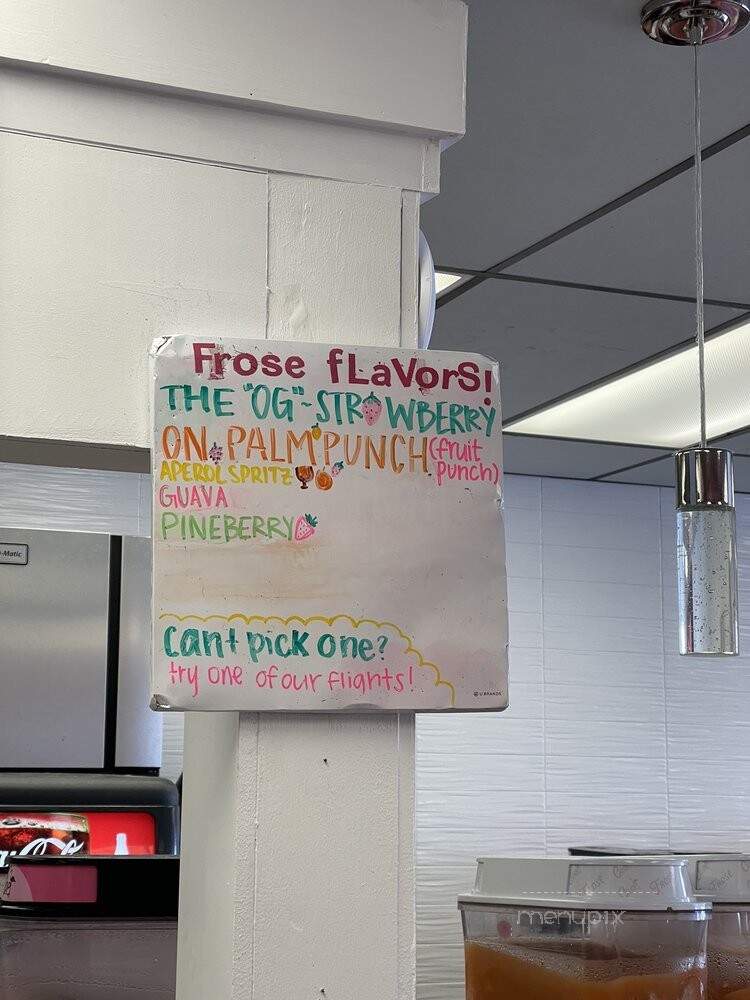 Frose fLaVorS!
THE "OG"~STRWBERRY
ON PALM PUNCH (fruit punch)
APEROL SPRITZ
GUAVA
PINEBERRY
Cant pick one?
try one of our flights!
U BRANDS
-Matic
menupix